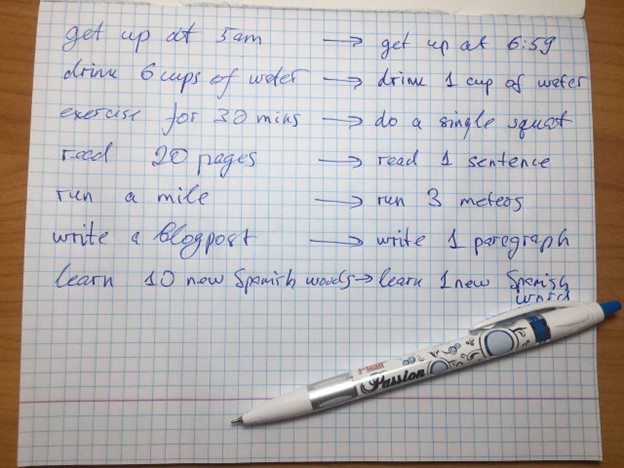 get up at 5am → get up at 6:59
drink 6 cups of water → drink 1 cup of water
exercise for 30 mins → do a single squat
read 20 pages → read 1 sentence
run a mile → run 3 meteos
write a blogpost → write 1 paragraph
learn 10 new Spanish words → learn 1 new Spanish
word
Passion